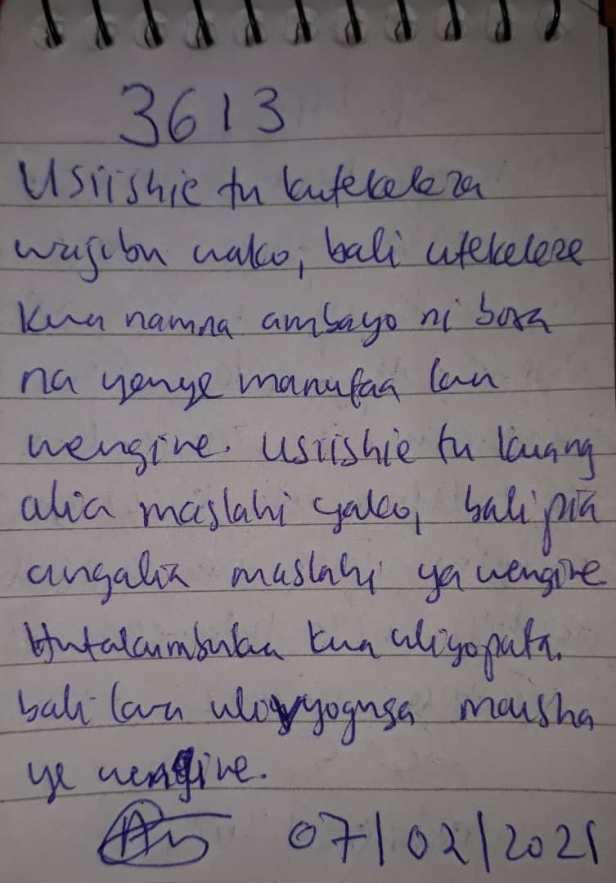 3613
Usiishie tu kutekeleza
wajibu wako, bali utekeleze
kwa namna ambayo ni bora
na yenye manufaa kwa
wengine. Usiishie tu kuang
alia maslahi yako, bali pia
angalia maslahi ya wengine
Hutakumbukwa kwa uliyopata.
bali kwa uloyogusa maisha
ye wengine.
07/02/2021